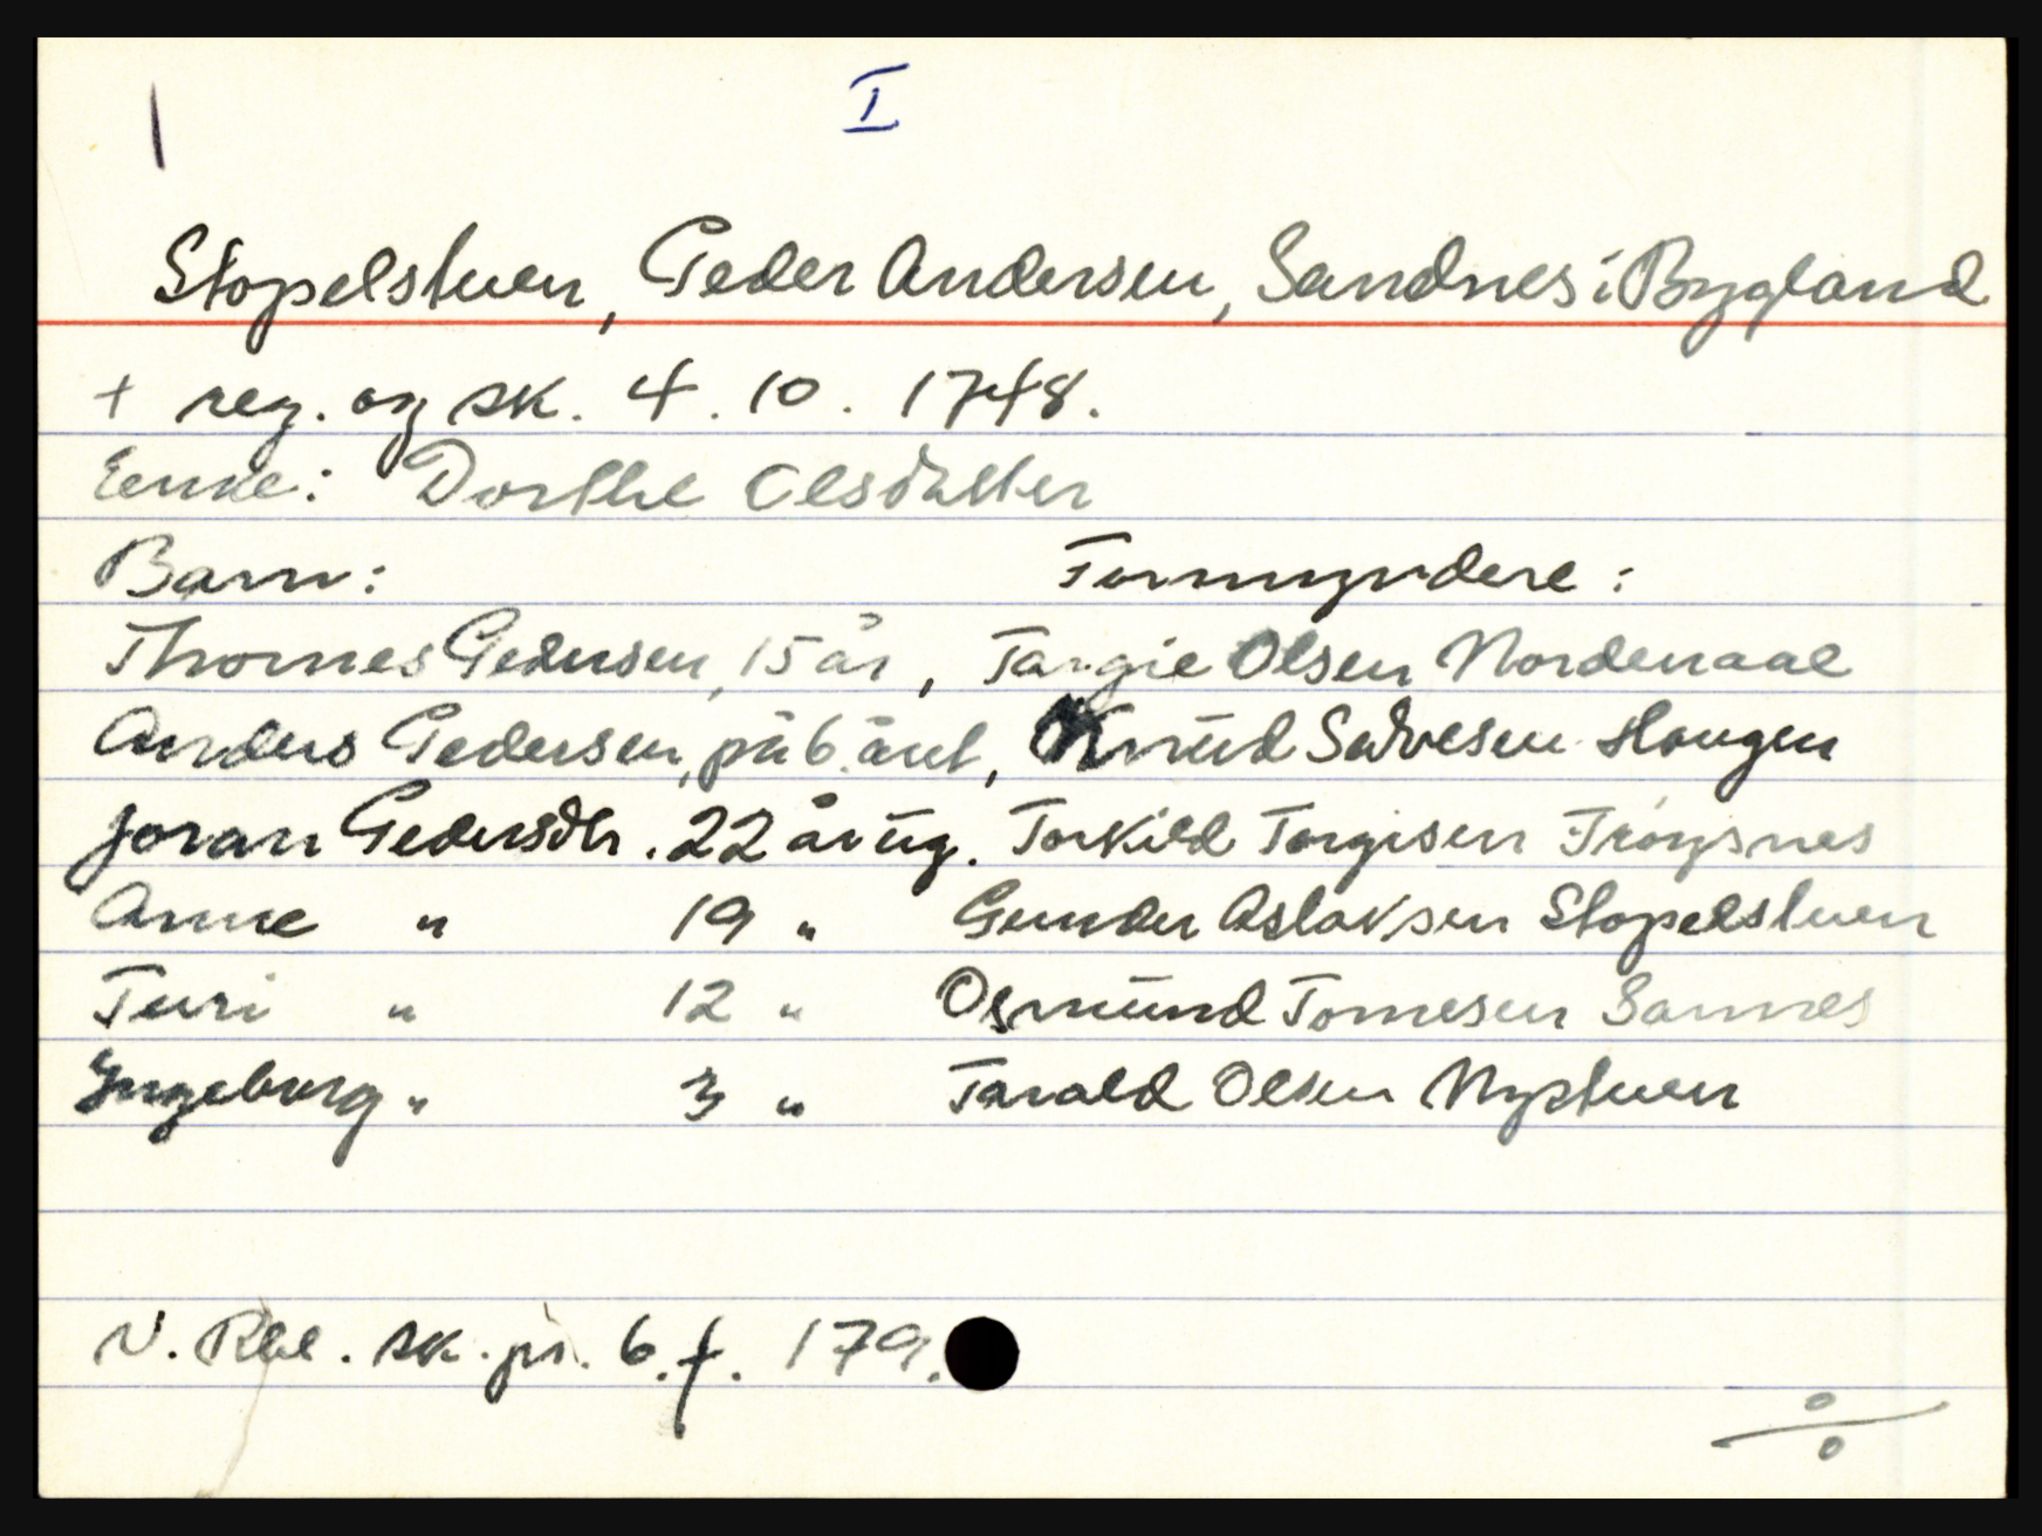 I
Stopelstuen, Peder Andersen, Sandnes i Bygland
+ reg. og sk. 4. 10. 1748.
Enke: Dorthe Olsdatter
Barn: Formyndere:
Thomes Pedersen, 15 år, Targie Olsen Nordenaae
Anders Pedersen, på 6. året, Knud Salvesen Haugen
Joran Pedersdtr. 22 år ug. Torkild Torgisen Frøysnes
Anne " 19 " Gunder Aslaksen Stopelstuen
Turi " 12 " Osmund Tomesen Sannes
Ingeborg " 3 " Tarald Olsen Nystuen
N. Rbl. sk. pr. 6. f. 179.